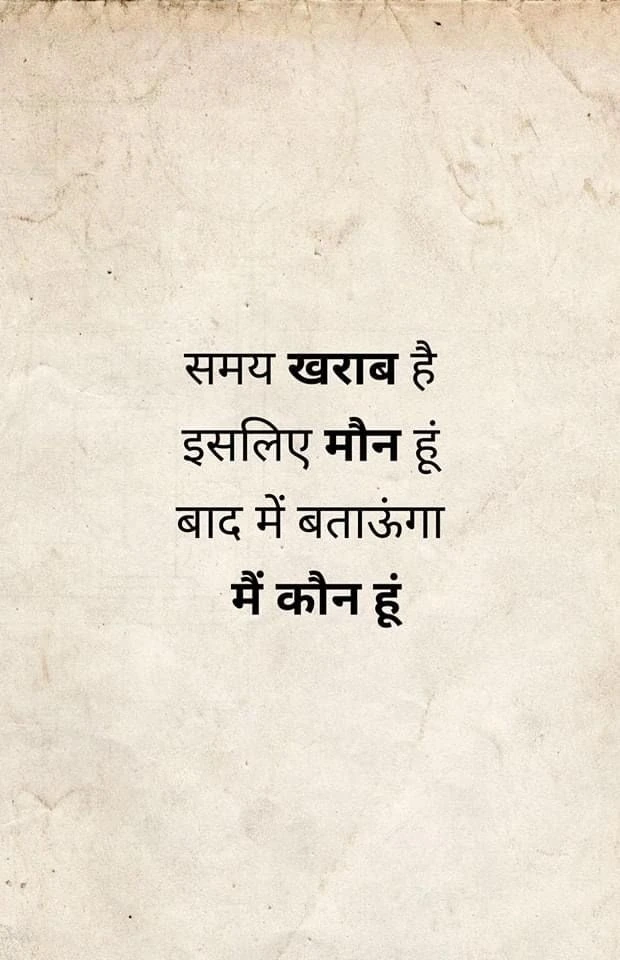 समय खराब है
इसलिए मौन हूं
बाद में बताऊंगा
मैं कौन हूं